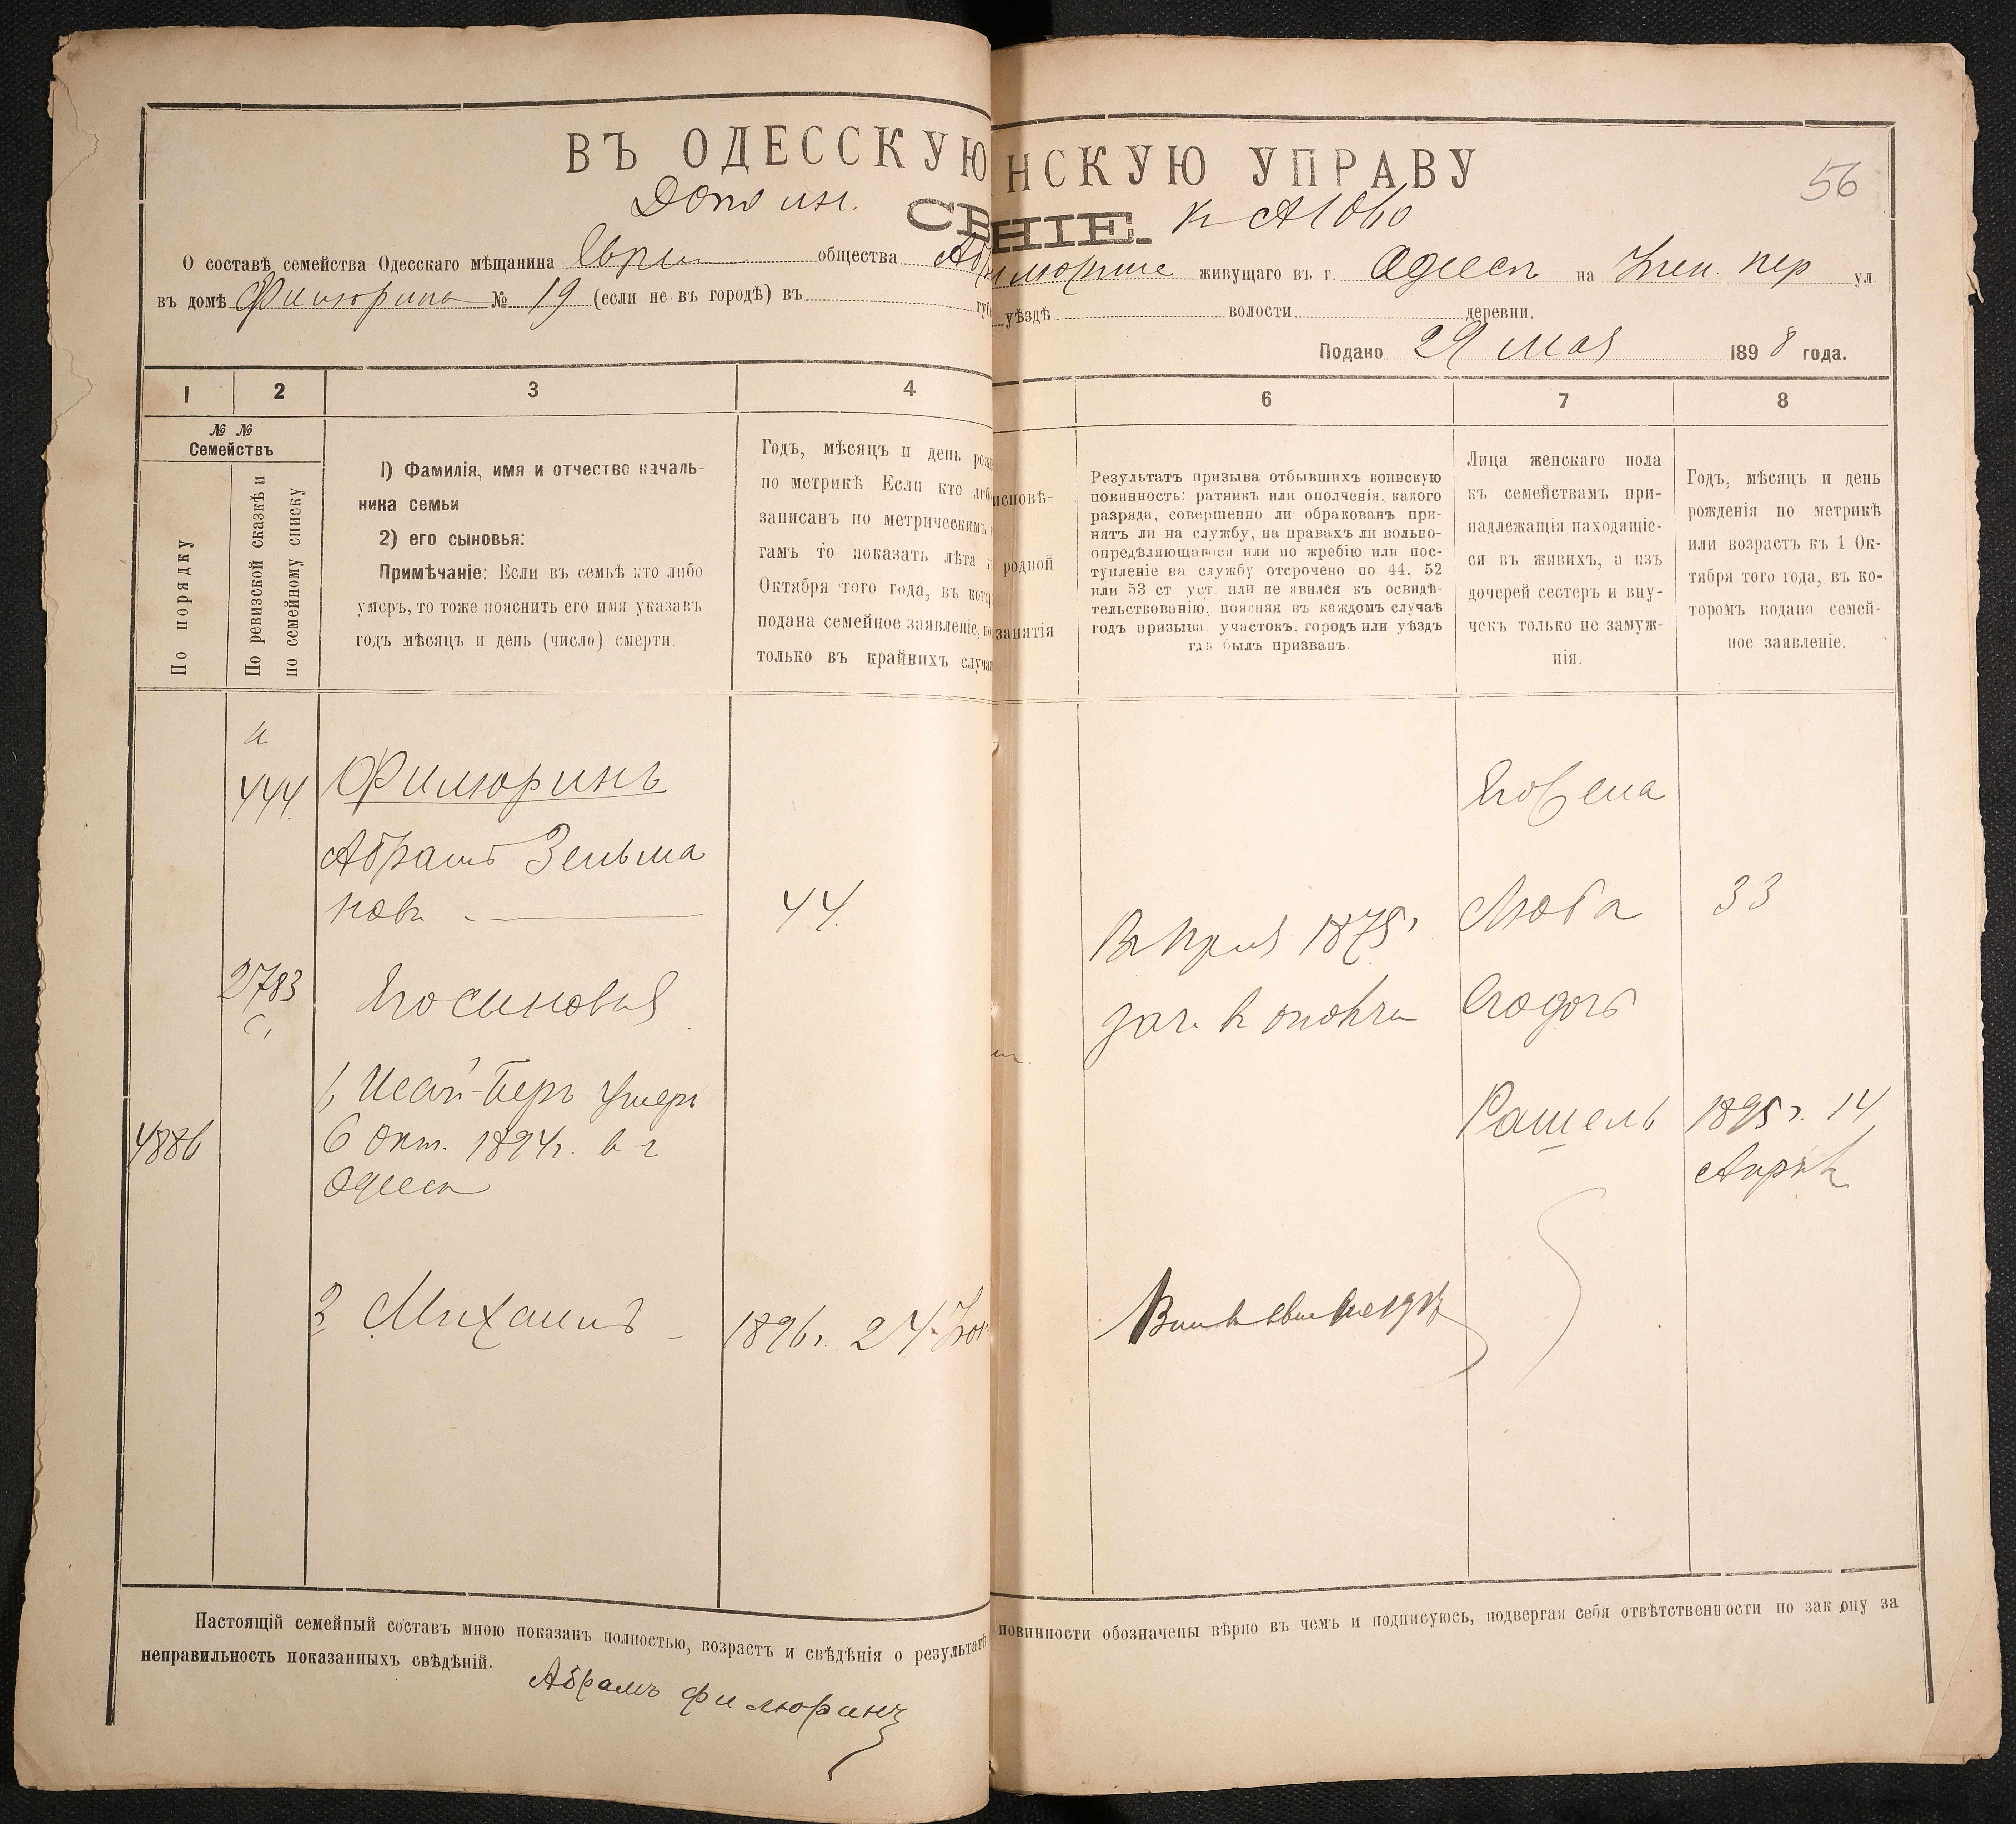 ВЪ ОДЕССКУЮ НСКУЮ УПРАВУ
56
СВ НІЕ.
О составѣ семейства Одесскаго мѣщанина Евр общества Абр живущаго въ г. Одессѣ на пер ул.
въ домѣ Филюрина № 19 (если не въ городѣ) въ губе уѣздѣ волости деревни.
Подано 29 мая 1898 года.
1 2 3 4 6 7 8
№ №
Семействъ
По порядку
По ревизской сказкѣ и
по семейному списку
1) Фамилія, имя и отчество началь-
ника семьи
2) его сыновья:
Примѣчаніе: Если въ семьѣ кто либо
умеръ, то тоже пояснить его имя указавъ
годъ мѣсяцъ и день (число) смерти.
Годъ, мѣсяцъ и день рожд
по метрикѣ Если кто либо
записанъ по метрическимъ
гамъ то показать лѣта к
Октября того года, въ котор
подана семейное заявленіе, но
только въ крайнихъ случа
исповѣ-
родной
занятія
Результатъ призыва отбывшихъ воинскую
повинность: ратникъ или ополченія, какого
разряда, совершенно ли обракованъ при-
нятъ ли на службу, на правахъ ли вольно-
опредѣляющагося или по жребію или пос-
тупленіе на службу отсрочено по 44, 52
или 53 ст уст или не явился къ освидѣ-
тельствованію. поясняя въ каждомъ случаѣ
годъ призыва. участокъ, городъ или уѣздъ
гдѣ былъ призванъ.
Лица женскаго пола
къ семействамъ при-
надлежащія находящіе-
ся въ живихъ, а изъ
дочерей сестеръ и вну-
чекъ только не замуж-
нія.
Годъ, мѣсяцъ и день
рожденія по метрикѣ
или возрастъ къ 1 Ок-
тября того года, въ ко-
торомъ подано семей-
ное заявленіе.
444.
Филюринъ
Абрамъ Зельма
новъ
44.
2783
Его сыновья
1, Исай-Беръ умеръ
6 Окт. 1894г. в г
Одессѣ
4886
2 Михаилъ
1896г. 24
1875г
зач. в
Его жена
Люба 33
Его дочь
Рашель 1895г. 14
Апрѣл
Настоящій семейный составъ мною показанъ полностью, возрастъ и свѣдѣнія о результатѣ повинности обозначены вѣрно въ чемъ и подписуюсь, подвергая себя отвѣтственности по закону за
неправильность показанныхъ свѣдѣній.
Абрамъ Филюринъ